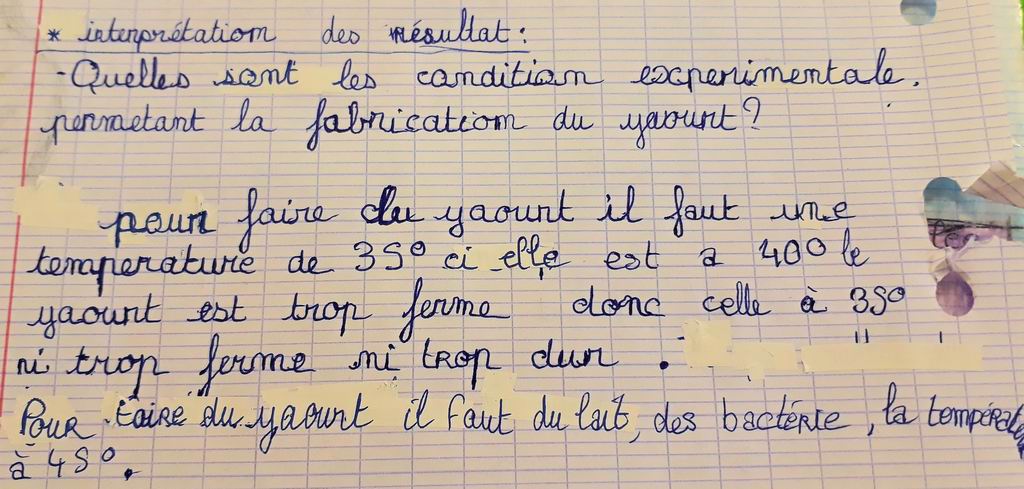 * interprétation des résultat :
- Quelles sont les condition experimentale.
permetant la fabrication du yaourt ?
pour faire du yaourt il faut une
temperature de 35° ci elle est a 40° le
yaourt est trop ferme donc celle à 35°
ni trop ferme ni trop dur .
Pour faire du yaourt il faut du lait, des bactérie, la températ
à 45°.